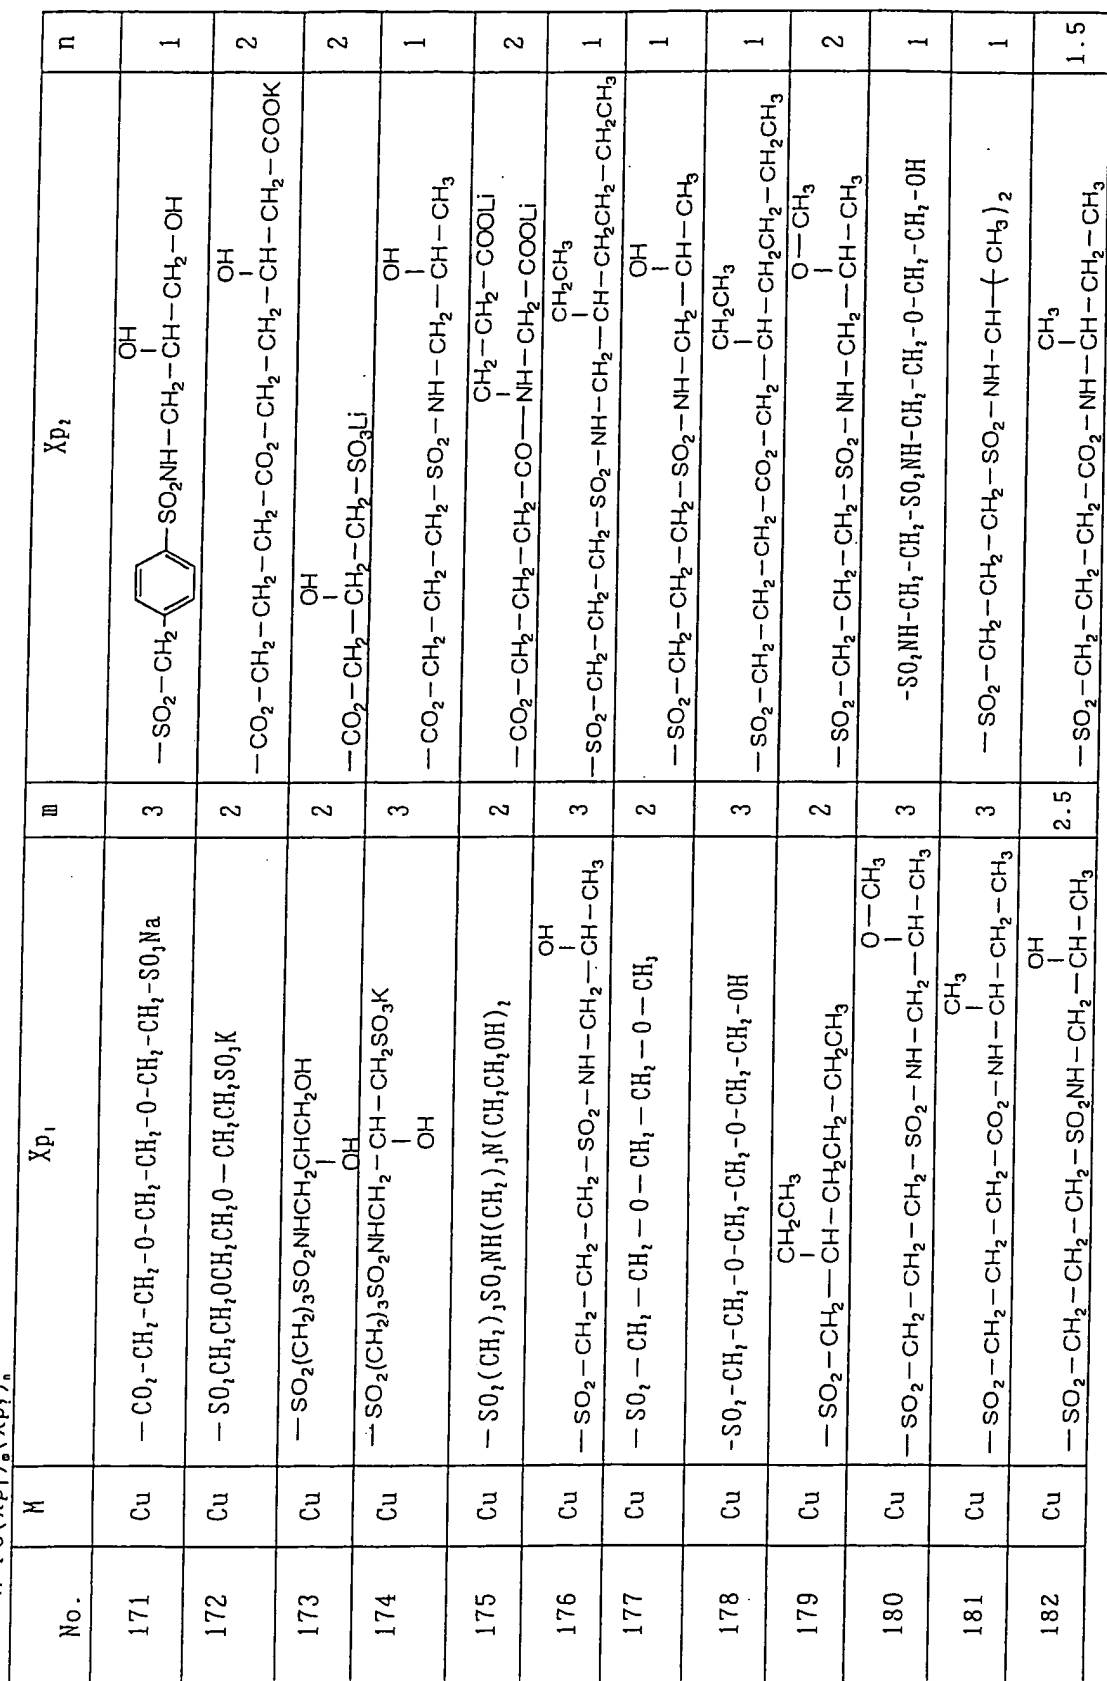 No. M Xp₁ m Xp₂ n
171 Cu —CO₂-CH₂-CH₂-O-CH₂-CH₂-O-CH₂-CH₂-SO₃Na 3 —SO₂—CH₂—SO₂NH—CH₂—CH(OH)—CH₂—OH 1
172 Cu —SO₂CH₂CH₂OCH₂CH₂O—CH₂CH₂SO₃K 2 —CO₂—CH₂—CH₂—CH₂—CO₂—CH₂—CH₂—CH(OH)—CH₂—COOK 2
173 Cu —SO₂(CH₂)₃SO₂NHCH₂CH(OH)CH₂OH 2 —CO₂—CH₂—CH(OH)—CH₂—SO₃Li 2
174 Cu —SO₂(CH₂)₃SO₂NHCH₂—CH(OH)—CH₂SO₃K 3 —CO₂—CH₂—CH₂—CH₂—SO₂—NH—CH₂—CH(OH)—CH₃ 1
175 Cu —SO₂(CH₂)₃SO₂NH(CH₂)₃N(CH₂CH₂OH)₂ 2 —CO₂—CH₂—CH₂—CH₂—CO—NH—CH(CH₂—CH₂—COOLi)—CH₂—COOLi 2
176 Cu —SO₂—CH₂—CH₂—CH₂—SO₂—NH—CH₂—CH(OH)—CH₃ 3 —SO₂—CH₂—CH₂—CH₂—SO₂—NH—CH₂—CH(CH₂CH₃)—CH₂CH₂—CH₂CH₃ 1
177 Cu —SO₂—CH₂—CH₂—O—CH₂—CH₂—O—CH₃ 2 —SO₂—CH₂—CH₂—CH₂—SO₂—NH—CH₂—CH(OH)—CH₃ 1
178 Cu -SO₂-CH₂-CH₂-O-CH₂-CH₂-O-CH₂-CH₂-OH 3 —SO₂—CH₂—CH₂—CH₂—CO₂—CH₂—CH(CH₂CH₃)—CH₂CH₂—CH₂CH₃ 1
179 Cu —SO₂—CH₂—CH(CH₂CH₃)—CH₂CH₂—CH₂CH₃ 2 —SO₂—CH₂—CH₂—CH₂—SO₂—NH—CH₂—CH(O—CH₃)—CH₃ 2
180 Cu —SO₂—CH₂—CH₂—CH₂—SO₂—NH—CH₂—CH(O—CH₃)—CH₃ 3 -SO₂NH-CH₂-CH₂-SO₂NH-CH₂-CH₂-O-CH₂-CH₂-OH 1
181 Cu —SO₂—CH₂—CH₂—CH₂—CO₂—NH—CH(CH₃)—CH₂—CH₃ 3 —SO₂—CH₂—CH₂—CH₂—SO₂—NH—CH—(CH₃)₂ 1
182 Cu —SO₂—CH₂—CH₂—CH₂—SO₂NH—CH₂—CH(OH)—CH₃ 2.5 —SO₂—CH₂—CH₂—CH₂—CO₂—NH—CH(CH₃)—CH₂—CH₃ 1.5